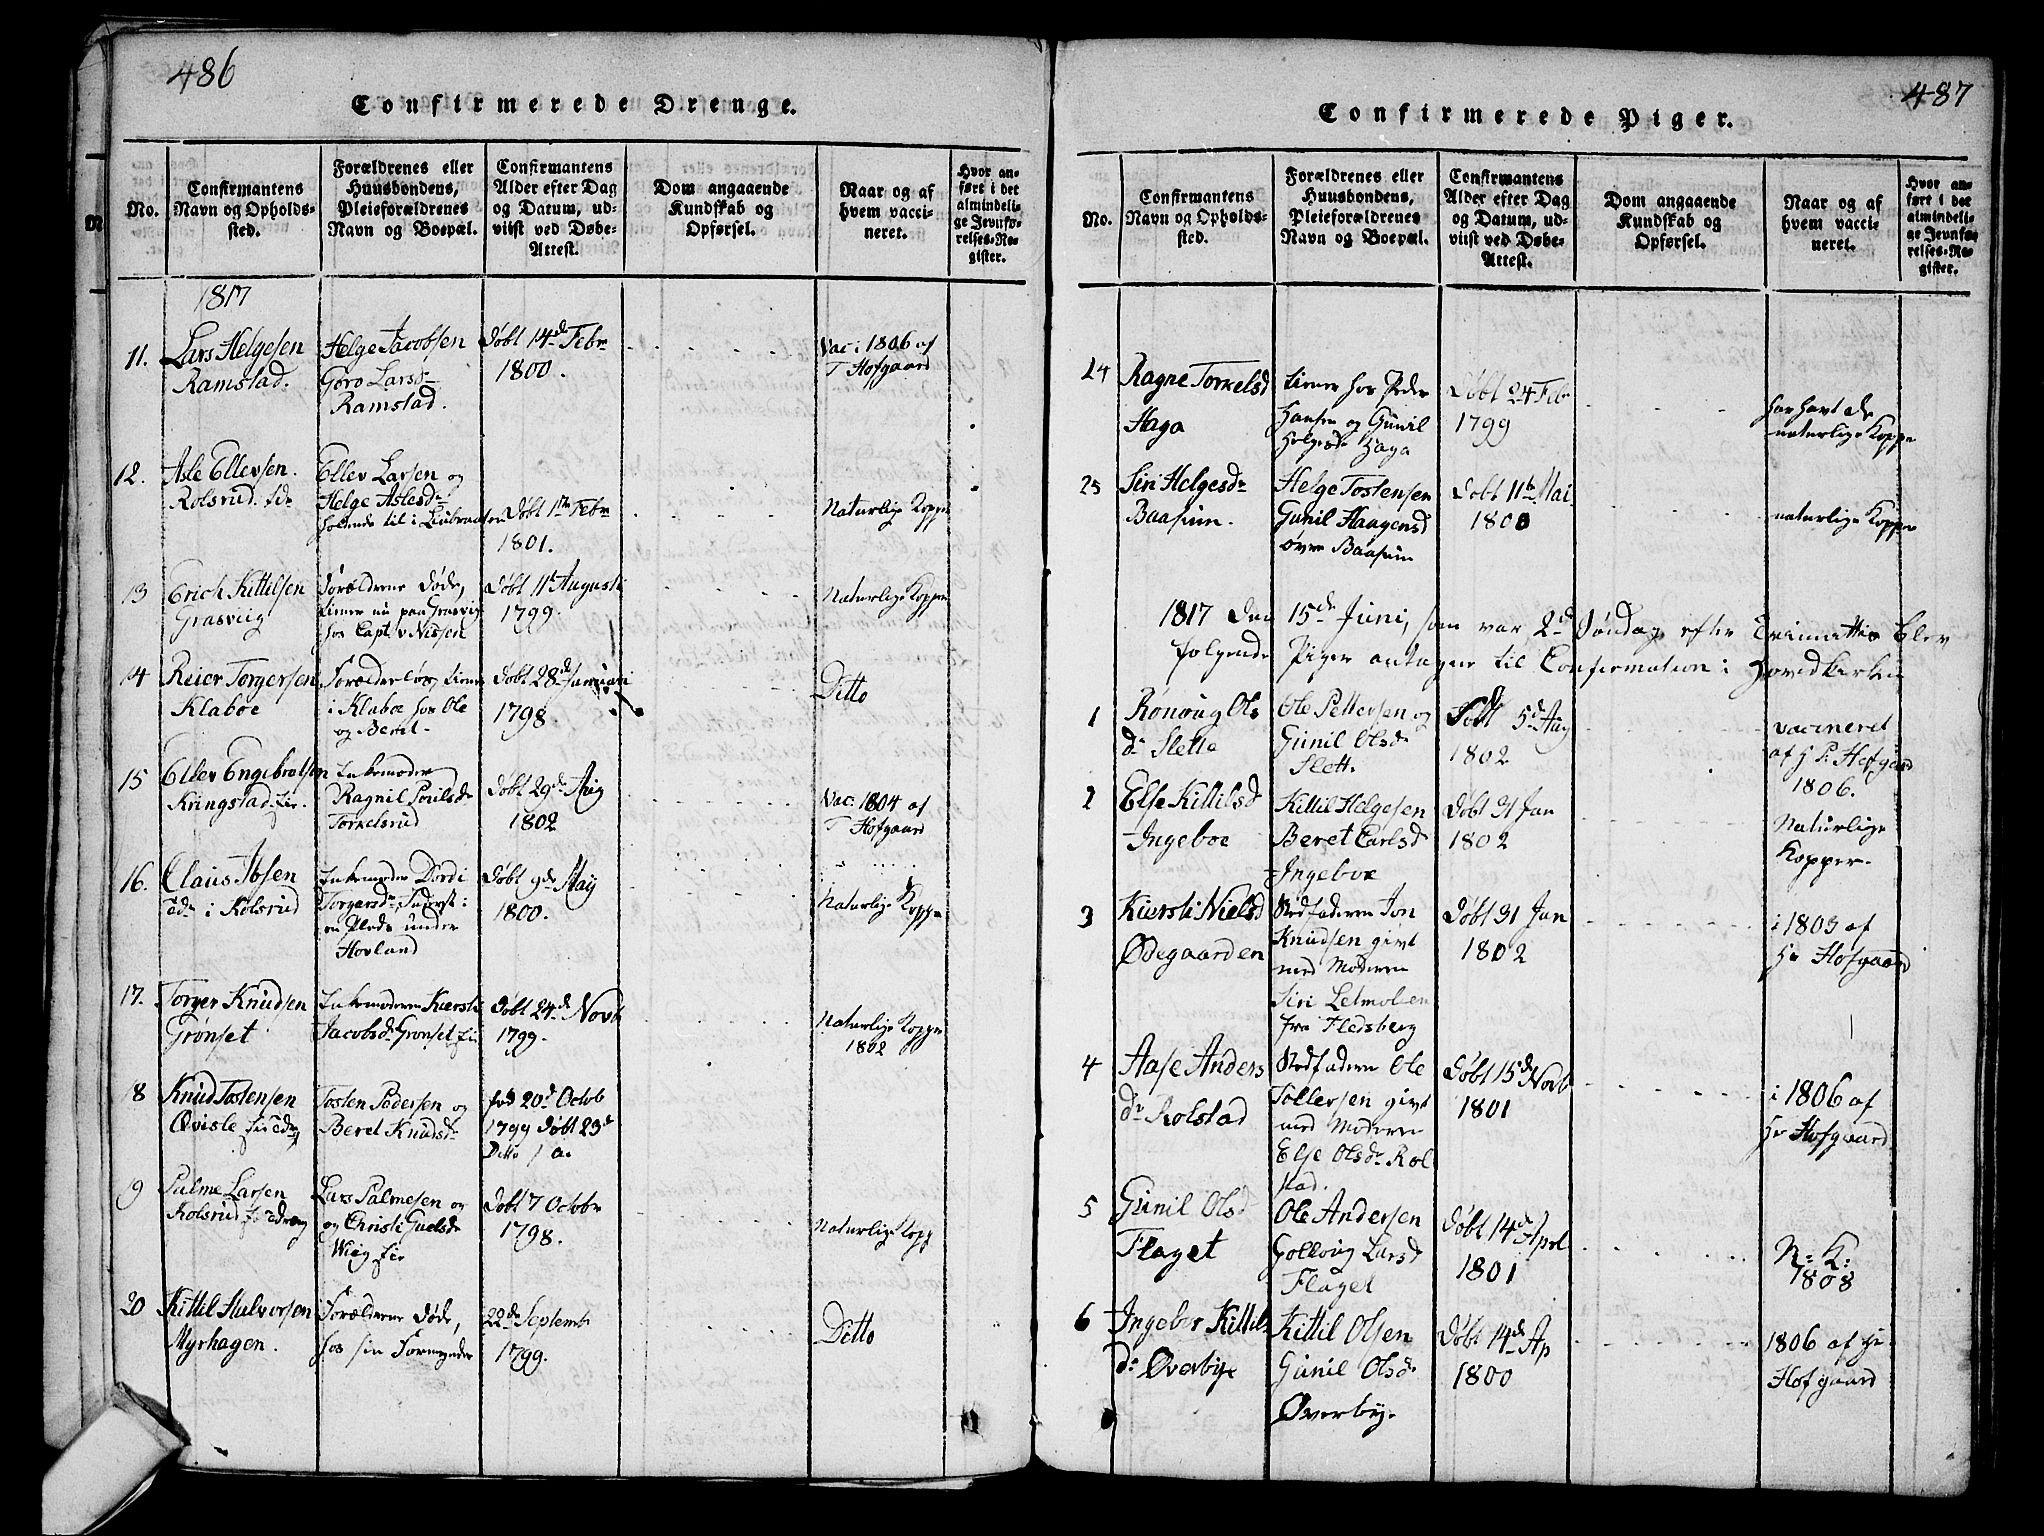 486
Confirmerede Drenge.
No.
Confirmantens
Navn og Opholds-
sted.
Forældrenes eller
Huusbondens,
Pleieforældrenes
Navn og Boepæl.
Confirmantens
Alder efter Dag
og Datum, ud-
viist ved Døbe-
Attest.
Dom angaaende
Kundskab og
Opførsel.
Naar og af
hvem vacci-
neret.
Hvor an-
ført i det
almindeli-
ge Jevnfø-
relses-Re-
gister.
1817
11.
Lars Helgesen
Ramstad.
Helge Jacobsen
Goro Larsd
Ramstad.
Døbt 14de Febr
1800.
Vac: 1806 af
T Hofgaard
12.
Asle Ellevsen.
Rolsrud.
Ellev Larsen og
Helge Aslesdr
holdende til i
Døbt 1ste Febr
1801.
Naturlige Kopper
13
Erich Kittilsen
Grasviig
Forældrene døde,
tiener nu paa Grasvig
hos Capt. v Nissen
Døbt 11te Augusti
1799.
Naturlige Kopper
14
Reier Torgersen
Klaboe
Forælderløs tiener
i Klaboe hos Ole
og Beret.
Døbt 28de Januari
1798.
Ditto
15
Ellev Engebretsen
Kringstad
Enkemoder
Ragnil Poulsdr
Torkelsrud
Døbt 29de Aug
1802
Vac: 1804 af
T Hofgaard
16.
Claus Ibsen
i Rolsrud
Enkemoder Dordi
Torgersdr
en Plads under
Hovland
Døbt 9de May
1800.
Naturlige Kopper
17.
Torger Knudsen
Grønset
Enkemoderen Kiersti
Jacobsdr Grønset
Døbt 24de Novb
1799.
Naturlige Kopper
1802
18
Knud Tostensen
Qvisle
Tosten Pedersen og
Beret Knudsdr
fød 20de Octob
1799 døbt 23de
Ditto / a.
19
Palme Larsen
Rolsrud
Lars Palmesen og
og Christi Guulsdr
Wiig
Døbt 7 Octobr
1798.
Naturlige Kopp
20
Kittil Halvorsen
Myrhagen.
Forældrene døde,
hos sin Formynder
22de Septemb
1799.
Ditto
487
Confirmerede Piger.
No.
Confirmantens
Navn og Opholds-
sted.
Forældrenes eller
Huusbondens,
Pleieforældrenes
Navn og Boepæl.
Confirmantens
Alder efter Dag
og Datum, ud-
viist ved Døbe-
Attest.
Dom angaaende
Kundskab og
Opførsel.
Naar og af
hvem vacci-
neret.
Hvor an-
ført i det
almindeli-
ge Jevnfø-
relses-Re-
gister.
24
Ragne Torkelsd
Haga
tiener hos Peder
Hansen og Gunil
Helgesdr Haga
Døbt 24 Febr
1799
har havt de
naturlige Kopper
25
Siri Helgesdr
Baasum.
Helge Tostensen
Gunil Haagensd
øvre Baasum
Døbt 11te Mai
1800
naturlige Kopper
1817 den 15de Juni, som var 2de Søndag efter Trinitatis blev
følgende Piger antagne til Confirmation i Hovedkirken
1
Rønoug Ols
dr Slette
Ole Pettersen og
Gunil Olsdr
Slett.
Født 5de Aug
1802
vaccineret
af H P. Hofgaard
1806.
2
Else Kittilsd
Ingeboe
Kittil Helgesen
Beret Carlsdr
Ingeboe
Døbt 31 Jan
1802
Naturlige
Kopper.
3
Kiersti Nielsd
Ødegaarden
Stedfaderen Jon
Knudsen givt
med Moderen
Siri
fra Flesberg
Døbt 31 Jan
1802
i 1803 af
Hr Hofgaard
4
Aase Anders
dr Rolstad
Stedfaderen Ole
Tollevsen givt
med Moderen
Else Olsdr Rol
stad.
Døbt 15de Novb
1801
i 1806 af
Hr Hofgaard
5
Gunil Olsd
Flaget
Ole Andersen
Gollouig Larsd
Flaget
Døbt 14de Aprl
1801
N: K:
1808
6
Ingebor Kittils
dr Øverbye
Kittil Olsen
Gunil Olsdr
Øverbye.
Døbt 14de Ap
1800
1806 af Hr
Hofgaard